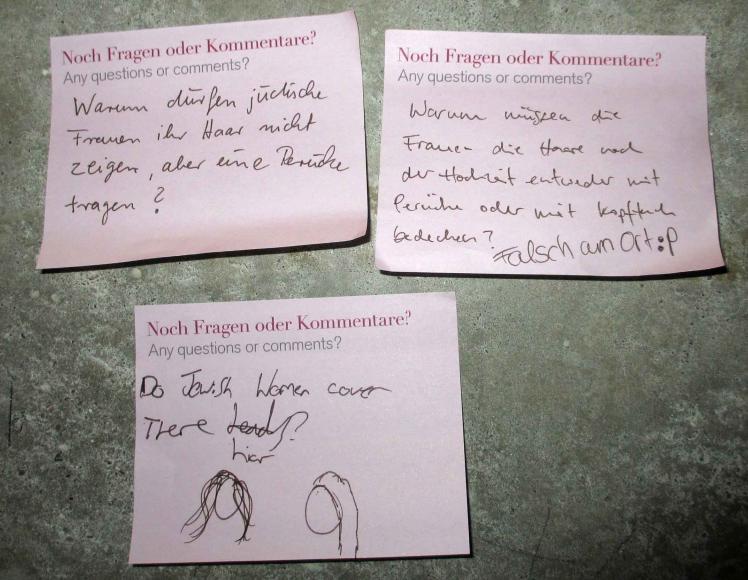 Noch Fragen oder Kommentare?
Any questions or comments?
Warum dürfen jüdische
Frauen ihr Haar nicht
zeigen, aber eine Perücke
tragen?
Noch Fragen oder Kommentare?
Any questions or comments?
Warum müssen die
Frauen die Haare nach
der Hochzeit entweder mit
Perücke oder mit Kopftuch
bedecken? Falsch am Ort :P
Noch Fragen oder Kommentare?
Any questions or comments?
Do Jewish Women cover
There heads?
hier